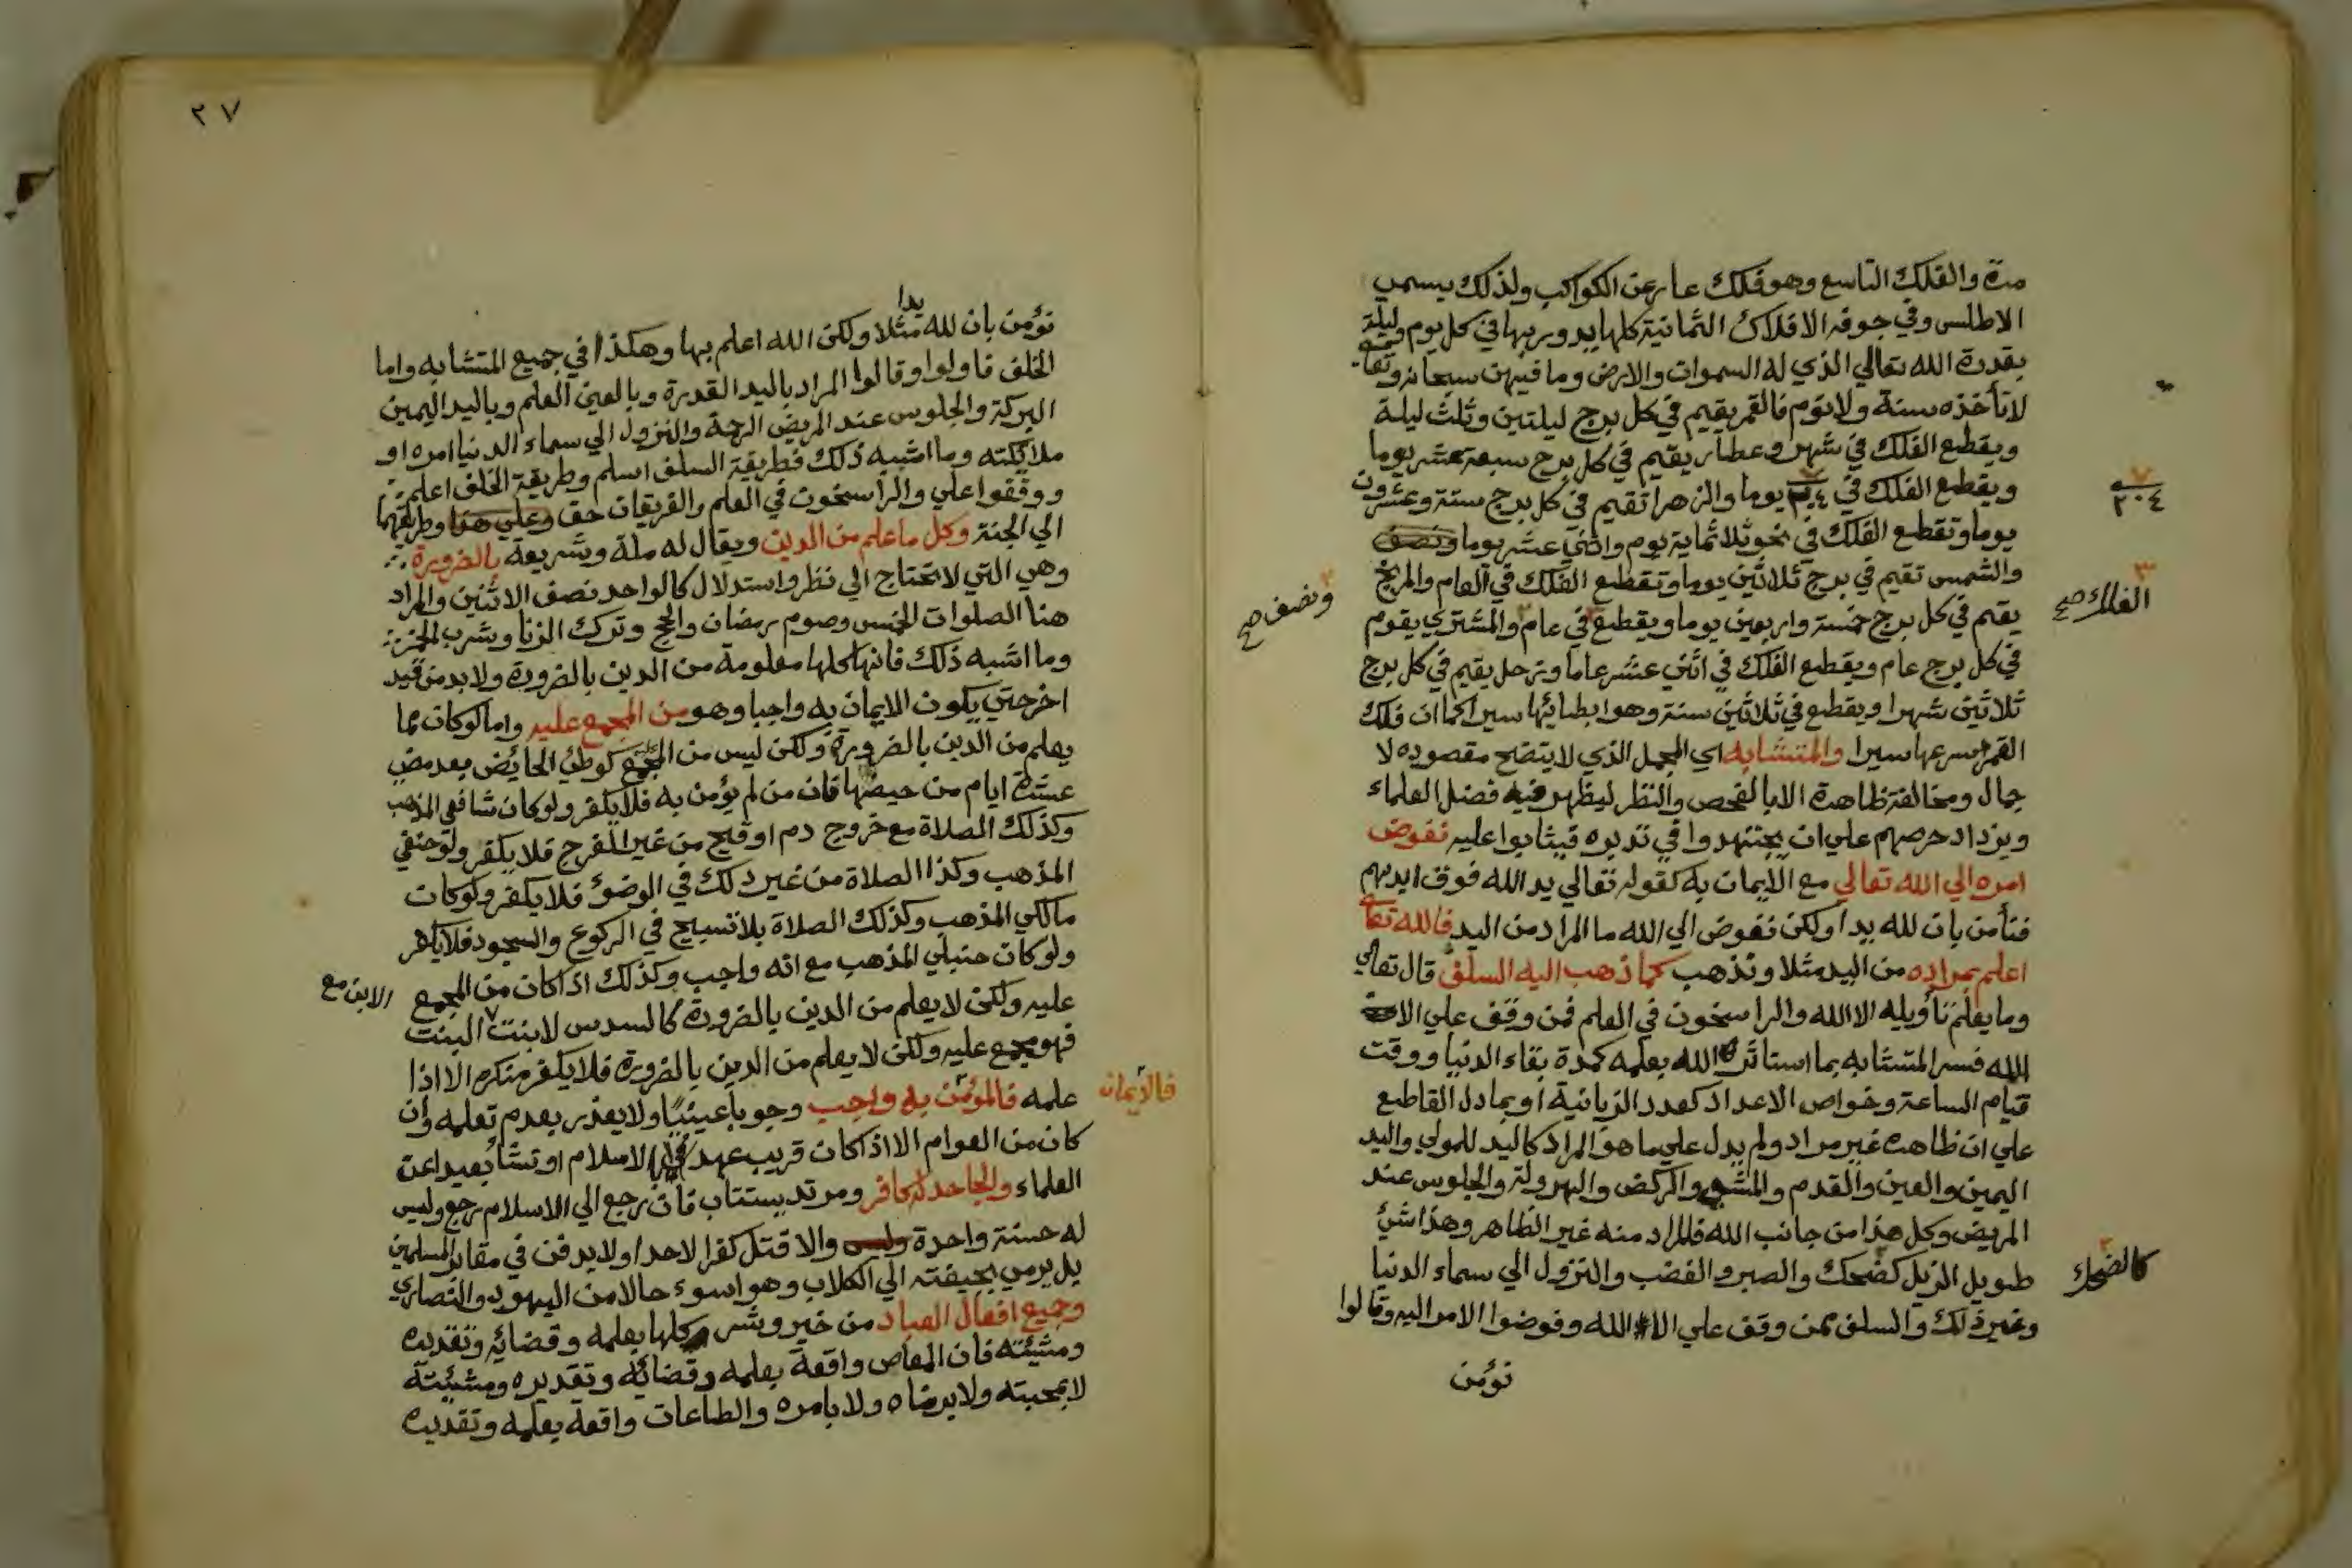 مدة والفلك التاسع وهو فلك عار عن الكواكب ولذلك يسمي
الاطلس وفي جوفه الافلاك الثمانية كلها يدور بها في كل يوم وليلة
بقدرة الله تعالي الذي له السموات والارض وما فيهن سبحانه وتعا
لا تأخذه سنة ولا نوم فالقمر يقيم في كل برج ليلتين وثلث ليلة
ويقطع الفلك في شهر وعطارد يقيم في كل برج سبعة عشر يوما
ويقطع الفلك في يوما والزهرا تقيم في كل برج ستة وعشرون
٢٠٤
يوما وتقطع الفلك في نحو ثلاثماية يوم واثني عشر يوما ونصف
ونصف صح
والشمس تقيم في برج ثلاثين يوما وتقطع الفلك في العام والمريخ
الفلك صح
يقيم في كل برج خمسة واربعين يوما ويقطع في عام والمشتري يقوم
في كل برج عام ويقطع الفلك في اثني عشر عاما وزحل يقيم في كل برج
ثلاثين شهرا ويقطع في ثلاثين سنة وهو ابطائها سيرا كما ان فلك
القمر اسرعها سيرا والمتشابه اي المجمل الذي لا يتضح مقصوده لا
جمال ومخالفة ظاهره الا بالفحص والنظر ليظهر فيه فضل العلماء
ويزداد حرصهم علي ان يجتهدوا في تدبره فيثابوا عليه نفوض
امره الي الله تعالي مع الايمان به كقوله تعالي يد الله فوق ايديهم
فنأمن بان لله يدا ولكن نفوض الي الله ما المراد من اليد فالله تعا
اعلم بمراده من اليد مثلا ونذهب كما ذهب اليه السلف قال تعالي
وما يعلم تأويله الا الله والراسخون في العلم فمن وقف علي الا
الله فسر المتشابه بما استاثر الله بعلمه كمدة بقاء الدنيا ووقت
قيام الساعة وخواص الاعداد كعدد الزبانية او بما دل القاطع
علي ان ظاهره غير مراد ولم يدل علي ما هو المراد كاليد للمولي واليد
اليمين والعين والقدم والمشي والركض والهرولة والجلوس عند
المريض وكل هذا من جانب الله فالمراد منه غير الظاهر وهذا شئ
طويل الزيل كضحك والصبر والغضب والنزول الي سماء الدنيا
كالضحك
وغير ذلك والسلف ممن وقف علي الا الله وفوضوا الامر اليه وقالوا
نؤمن
٢٧
يدا
نؤمن بان لله مثلا ولكن الله اعلم بها وهكذا في جميع المتشابه واما
الخلف فاولوا وقالوا المراد باليد القدرة وبالعين العلم وباليد اليمين
البركة والجلوس عند المريض الرحمة والنزول الي سماء الدنيا امره او
ملائكته وما اشبه ذلك فطريقة السلف اسلم وطريقة الخلف اعلم
ووقفوا علي والراسخون في العلم والفريقان حق وعلي هذا وطريقهما
الي الجنة وكل ما علم من الدين ويقال له ملة وشريعة بالضرورة
وهي التي لا تحتاج الي نظر واستدلال كالواحد نصف الاثنين والمراد
هنا الصلوات الخمس وصوم رمضان والحج وترك الزنا وشرب الخمر
وما اشبه ذلك فانها كلها معلومة من الدين بالضرورة ولا بد من قيد
اخر حتي يكون الايمان به واجبا وهو من المجمع عليه واما لو كان مما
يعلم من الدين بالضرورة ولكن ليس من المجمع كوطئ الحائض بعد مضي
عشرة ايام من حيضها فان من لم يؤمن به فلا يكفر ولو كان شافعي المذهب
وكذلك الصلاة مع خروج دم او قيح من غير الفرج فلا يكفر ولو حنفي
المذهب وكذا الصلاة من غير دلك في الوضؤ فلا يكفر ولو كان
مالكي المذهب وكذلك الصلاة بلا تسبيح في الركوع والسجود فلا يكفر
ولو كان حنبلي المذهب مع انه واجب وكذلك اذا كان من المجمع
عليه ولكن لا يعلم من الدين بالضرورة كالسدس لابنت البنت
الابن مع
فهو مجمع عليه ولكن لا يعلم من الدين بالضرورة فلا يكفر منكره الا اذا
علمه فالمؤمن به واجب وجوبا عينيا ولا يعذر بعدم تعلمه وان
فالايمان
كان من العوام الا اذا كان قريب عهد الاسلام او نشأ بعيدا عن
العلماء والجاحد له كافر ومرتد يستتاب فان رجع الي الاسلام رجع وليس
له حسنة واحدة وليس والا قتل كفرا لا حدا ولا يدفن في مقابر المسلمين
بل يرمي بجيفته الي الكلاب وهو اسوء حالا من اليهود والنصاري
وجميع افعال العباد من خير وشر كلها بعلمه وقضائه وتقديره
ومشيئته فان المعاص واقعة بعلمه وقضائه وتقديره ومشيئته
لا بمحبته ولا برضاه ولا بامره والطاعات واقعة بعلمه وتقديره